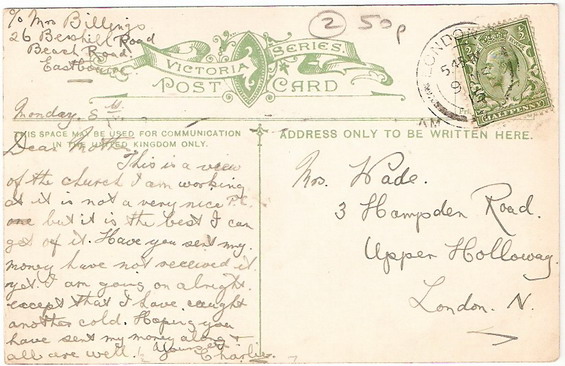 c/o Mrs Billings
26 Bexhill Road
Beach Road
Eastbourne
② 50p
VICTORIA SERIES.
POST CARD
LONDON
HALFPENNY
AM
Monday. 8th
THIS SPACE MAY BE USED FOR COMMUNICATION
IN THE UNITED KINGDOM ONLY.
ADDRESS ONLY TO BE WRITTEN HERE.
Dear Mother
This is a view
of the church I am working
at it is not a very nice P.C.
one but it is the best I can
get of it. Have you sent my
money have not received it
yet. I am going on alright.
except that I have caught
another cold. Hoping you
have sent my money along &
all are well. Yours etc.
Charlie.
Mrs. Wade.
3 Hampden Road.
Upper Holloway
London. N.